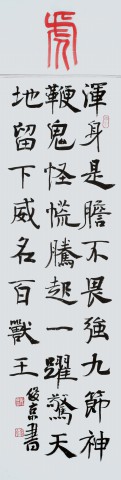 虎
渾身是膽不畏強九節神
鞭鬼怪慌騰起一躍驚天
地留下威名百獸王
俊京書